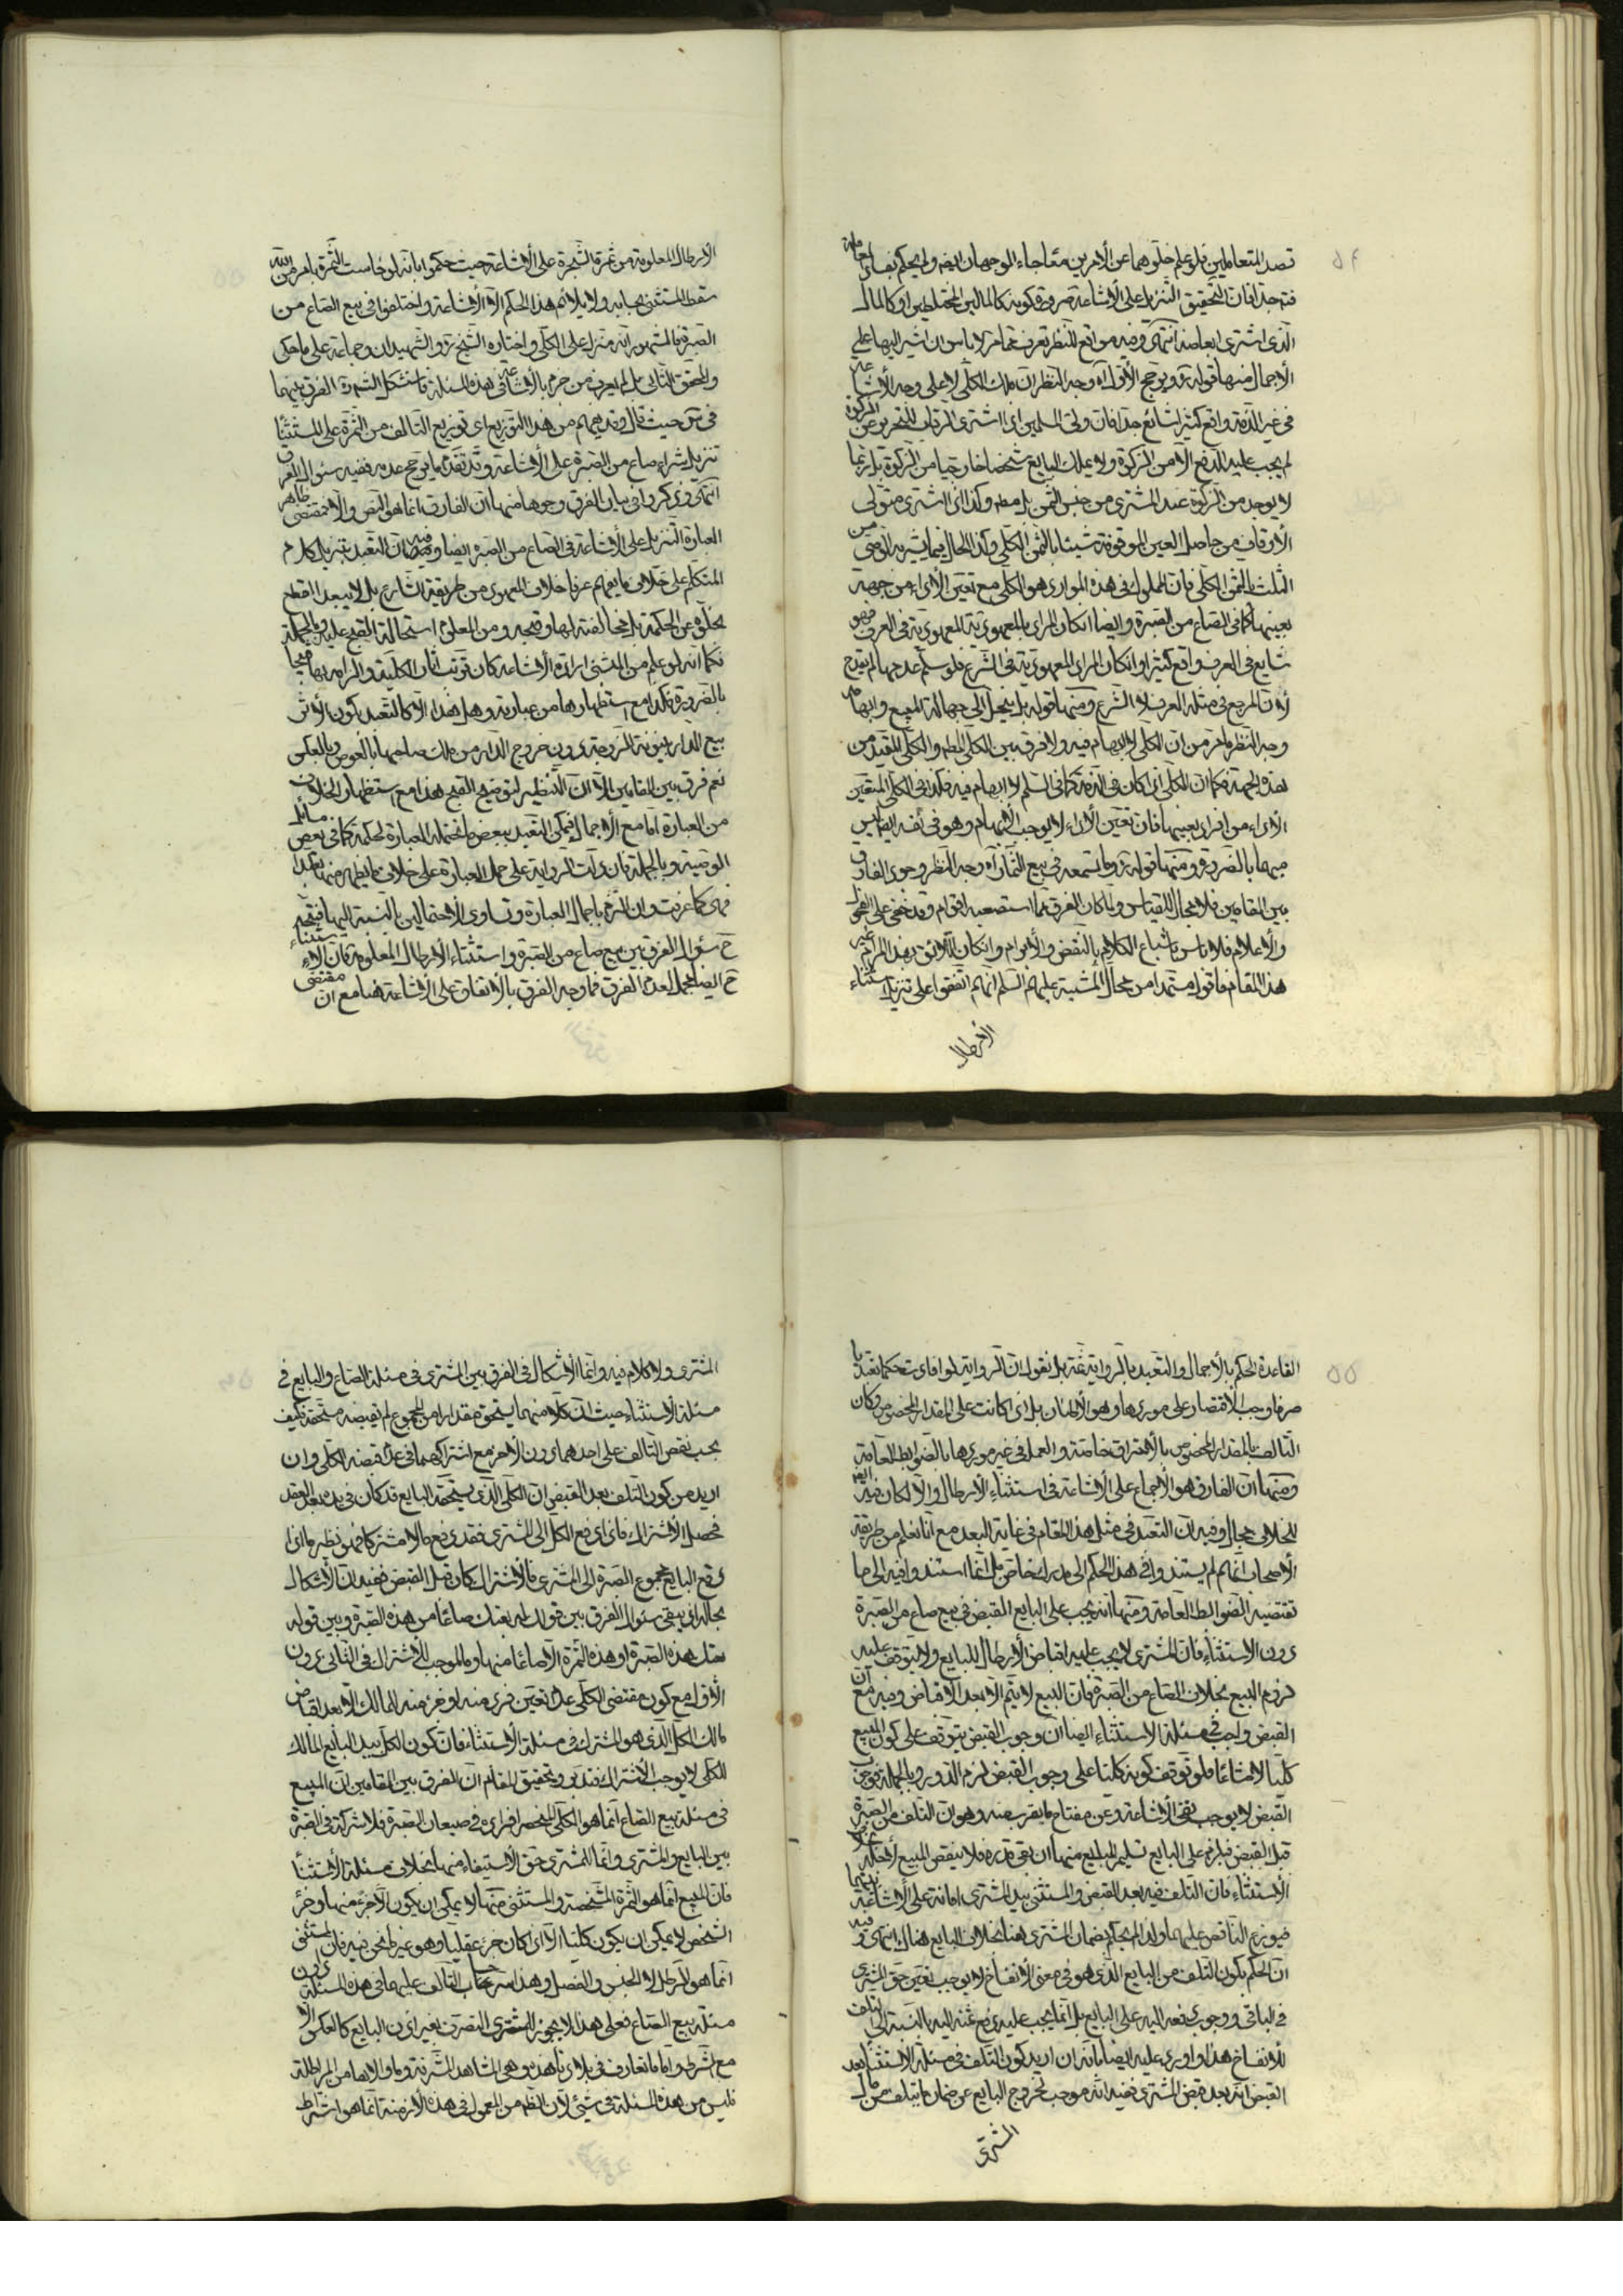 ۵۴
قصد المتعاملين فلو علم خلوهما عن الأمرين معا جاء الوجهان ايضه ولم يحكم بفساد المعاملة
فتم جدا فان التحقيق التنزيل على الأشاعة ضرورة كونه كالمالين المختلطين او كالمال
الذى اشترى ابعاضه انتهى وفيه مواقع للنظر تعرف مما مر لا باس ان اشير اليها على
الأجمال منها قوله ره ويرجح الأول اه وجه النظر ان ملك الكلى لا على وجه الأشاعة
فى غير الذمة واقع كثيرا شائع جدا فان ولى المسلمين اذا اشترى الرقاب للتحرير عن الزكوة
لم يجب عليه الدفع الا من الزكوة ولا يملك البايع شخصا خارجيا من الزكوة بل ربما
لا يوجد من الزكوة عند المشترى من جنس الثمن بل مطه وكذا اذا اشترى متولى
الأوقاف من حاصل العين الموقوفة شيئا بالثمن الكلى وكذا الحال فيما يشتريه الوصى من
الثلث بالثمن الكلى فان المملوك فى هذه الموارد هو الكلى مع تعين الأداء من جهة
بعينها كما فى الصاع من الصبرة وايضا ان كان المراد بالمعهودية المعهودية فى العرف فهو
شايع فى العرف واقع كثيرا وان كان المراد المعهودية فى الشرع فلو سلم عدمها لم يقدح
لأن المرجع فى مثله العرف لا الشرع ومنها قوله بل ينحل الى جهالة المبيع وابهامه
وجه النظر ما مر من ان الكلى لا ابهام فيه ولا فرق بين الكلى المطه والكلى المقيد من
هذه الجهة فكما ان الكلى اذا كان فى الذمة كما فى السلم لا ابهام فيه فكذا فى الكلى المتعين
الأداء من افراد بعينها فان تعين الأداء لا يوجب الأبهام وهو فى نفسه ليس
مبهما بالضرورة ومنها قوله ره وما تسمعه فى بيع الثمار اه وجه النظر وجود الفارق
بين المقامين فلا مجال للقياس ولما كان الفرق مما استصعبه اقوام وقد خفى على الفحول
والأعلام فلا باس باشباع الكلام بالنقض والأبرام وان كان اللائق بهذا المرام غير
هذا المقام فاقول مستمدا من محال المشية عليهم السلم انهم اتفقوا على تنزيل استثناء
الأرطال
الأرطال المعلومة من ثمرة الشجرة على الأشاعة حيث حكموا بانه لو خاست الثمرة بامر من الله
سقط المستثنى بحسابه ولا يلائم هذا الحكم الا الأشاعة واختلفوا فى بيع الصاع من
الصبرة فالمشهور انه منزل على الكلى واختاره الشيخ ره والشهيدان وجماعة على ما حكى
والمحقق الثانى بل لم يعرف من جزم بالأشاعة فى هذه المسئلة فاستشكل الشهيد ره الفرق بينهما
فى س حيث قال وقد يفهم من هذا التوزيع اى توزيع التالف من الثمرة على المستثنى
تنزيل شراء صاع من الصبرة على الأشاعة وقد تقدم ما يرجح عدمه ففيه سئوال الفرق
انتهى وذكروا فى بيان الفرق وجوها منها ان الفارق انما هو النص والا فمقتضى ظاهر
العبارة التنزيل على الأشاعة فى الصاع من الصبرة ايضا وفيه ان التعبد بتنزيل كلام
المتكلم على خلاف ما يفهم عرفا خلاف المعهود من طريقة الشارع بل لا يبعد القطع
بخلوه عن الحكمة بل مخالفته لها وقبحه ومن المعلوم استحالة القبح عليه وبالجملة
فكما انه لو علم من المستثنى ارادة الأشاعة كان ترتب اثار الكلية والزامه بها قبيحا
بالضرورة فكذا مع استظهارها من عبارته وهل هذا الا كالتعبد بكون الأثر
بيع الدار بينونة الزوجة دون خروج الدار من ملك صاحبها بالعوض وبالعكس
نعم فرق بين المقامين الا ان التنظير لتوضيح القبح هذا مع استظهار الخلاف
من العبارة اما مع الأجمال فيمكن التعبد ببعض ما تحتمله العبارة لحكمة كما فى بعض مسائل
الوصية وبالجملة فان دلت الرواية على حمل العبارة على خلاف ما يظهر منها تعبدا
فهى كما عرفت وان التزم باجمال العبارة وتساوى الأحتمالين بالنسبة اليها فيتجه
ح سئوال الفرق بين بيع صاع من الصبرة واستثناء الأرطال المعلومة فان الاستثناء
ح ايضا مجمل لعدم الفرق فما وجه الفرق بالأتفاق على الاشاعة هنا مع ان مقتضى
۵۵
القاعدة الحكم بالأجمال والتعبد بالرواية ثمة بل نقول ان الرواية لو افادت حكما تعبديا
صرفا وجب الأقتصار على موردها وهو الألبان بل اذا كانت على المقدار المخصوص وكان
التالف بالمقدار المخصوص بالأحتراق خاصة والعمل فى غير موردها بالضوابط العامة
ومنها ان الفارق هو الأجماع على الأشاعة فى استثناء الأرطال والا لكان فيه ايضا
للخلاف مجال وفيه ان التعبد فى مثل هذا المقام فى غاية البعد مع انا نعلم من طريقة
الأصحاب انهم لم يستندوا فى هذا الحكم الى مدرك خاص بل انما استندوا فيه الى ما
تقتضيه الضوابط العامة ومنها انه يجب على البايع القبض فى بيع صاع من الصبرة
دون الاستثناء فان المشترى لا يجب عليه اقباض الأرطال للبايع ولا يتوقف عليه
لزوم البيع بخلاف الصاع من الصبرة فان البيع لا يتم الا بعد الاقباض وفيه مع ان
القبض واجب فى مسئلة الاستثناء ايضا ان وجوب القبض يتوقف على كون المبيع
كليا لا مشاعا فلو توقف كونه كليا على وجوب القبض لزم الدور وبالجملة فوجوب
القبض لا يوجب نفى الأشاعة وعن مفتاح ما يقرب منه وهو ان التلف من الصبرة
قبل القبض فيلزم على البايع تسليم المبيع منها ان بقى قدره فلا ينقص المبيع لأجله بخلاف
الأستثناء فان التلف فيه بعد القبض والمستثنى بيد المشترى امانة على الأشاعة بينهما
فيوزع الناقص عليهما ولذا لم يحكم بضمان المشترى هنا بخلاف البايع هناك انتهى وفيه
ان الحكم بكون التلف من البايع الذى هو فى معنى الأنفساخ لا يوجب تعين حق المشترى
فى الباقى ووجوب دفعه اليه على البايع بل انما يجب عليه دفع ثمنه اليه بالنسبة الى التلف
للأنفساخ هذا واورد عليه ايضا بانه ان اريد كون التلف فى مسئلة الاستثناء بعد
القبض انه بعد قبض المشترى ففيه انه موجب لخروج البايع عن ضمان ما يتلف من مال
المشترى
المشترى ولا كلام فيه وانما الأشكال فى الفرق بين المشترى فى مسئلة الصاع والبايع فى
مسئلة الأستثناء حيث ان كلا منهما يستحق مقدارا من المجموع لم يقبضه مستحقه فكيف
يحسب نقص التالف على احدهما دون الأخر مع اشتراكهما فى عدم قبضه الكلى وان
اريد من كون التلف بعد القبض ان الكلى الذى يستحقه البايع قد كان فى يده بعد العقد
فحصل الأشتراك فاذا دفع الكل الى المشترى فقد دفع مالا مشتركا فهو نظير ما اذا
دفع البايع مجموع الصبرة الى المشترى فالأشتراك كان قبل القبض ففيه ان الأشكال
بحاله اذ يبقى سئوال الفرق بين قوله بعتك صاعا من هذه الصبرة وبين قوله
بعتك هذه الصبرة او هذه الثمرة الا صاعا منها وما الموجب للأشتراك فى الثانى دون
الأول مع كون مقتضى الكلى عدم تعين فرد منه او جزء منه لمالك الا بعد اقباض
مالك الكل الذى هو المشترك فى مسئلة الأستثناء فان كون الكل بيد البايع المالك
للكلى لا يوجب الأشتراك فتدبر وتحقيق المقام ان الفرق بين المقامين ان المبيع
فى مسئلة بيع الصاع انما هو الكلى المنحصر افراده فى صيعان الصبرة فلا شركة فى الصبرة
بين البايع والمشترى وانما للمشترى حق الأستيفاء منها بخلاف مسئلة الأستثناء
فان المبيع انما هو الثمرة المشخصة والمستثنى منها لا يمكن ان يكون الا جزء منها وجزء
الشخص لا يمكن ان يكون كليا الا اذا كان جزء عقليا وهو غير ما نحن فيه فان المستثنى
انما هو الرطل لا الجنس والفصل وهذا سر حساب التالف عليهما فى هذه المسئلة دون
مسئلة بيع الصاع فعلى هذا لا يجوز للمشترى التصرف بغير اذن البايع كالعكس الا
مع الشرط واما ما تعارف فى بلادنا هذه وهى المشاهد المشرفة وما والاها من المراطلة
فليس من هذه المسئلة فى شيئ لأن الظه من المعمول فى هذه الأزمنة انما هو اشتراط